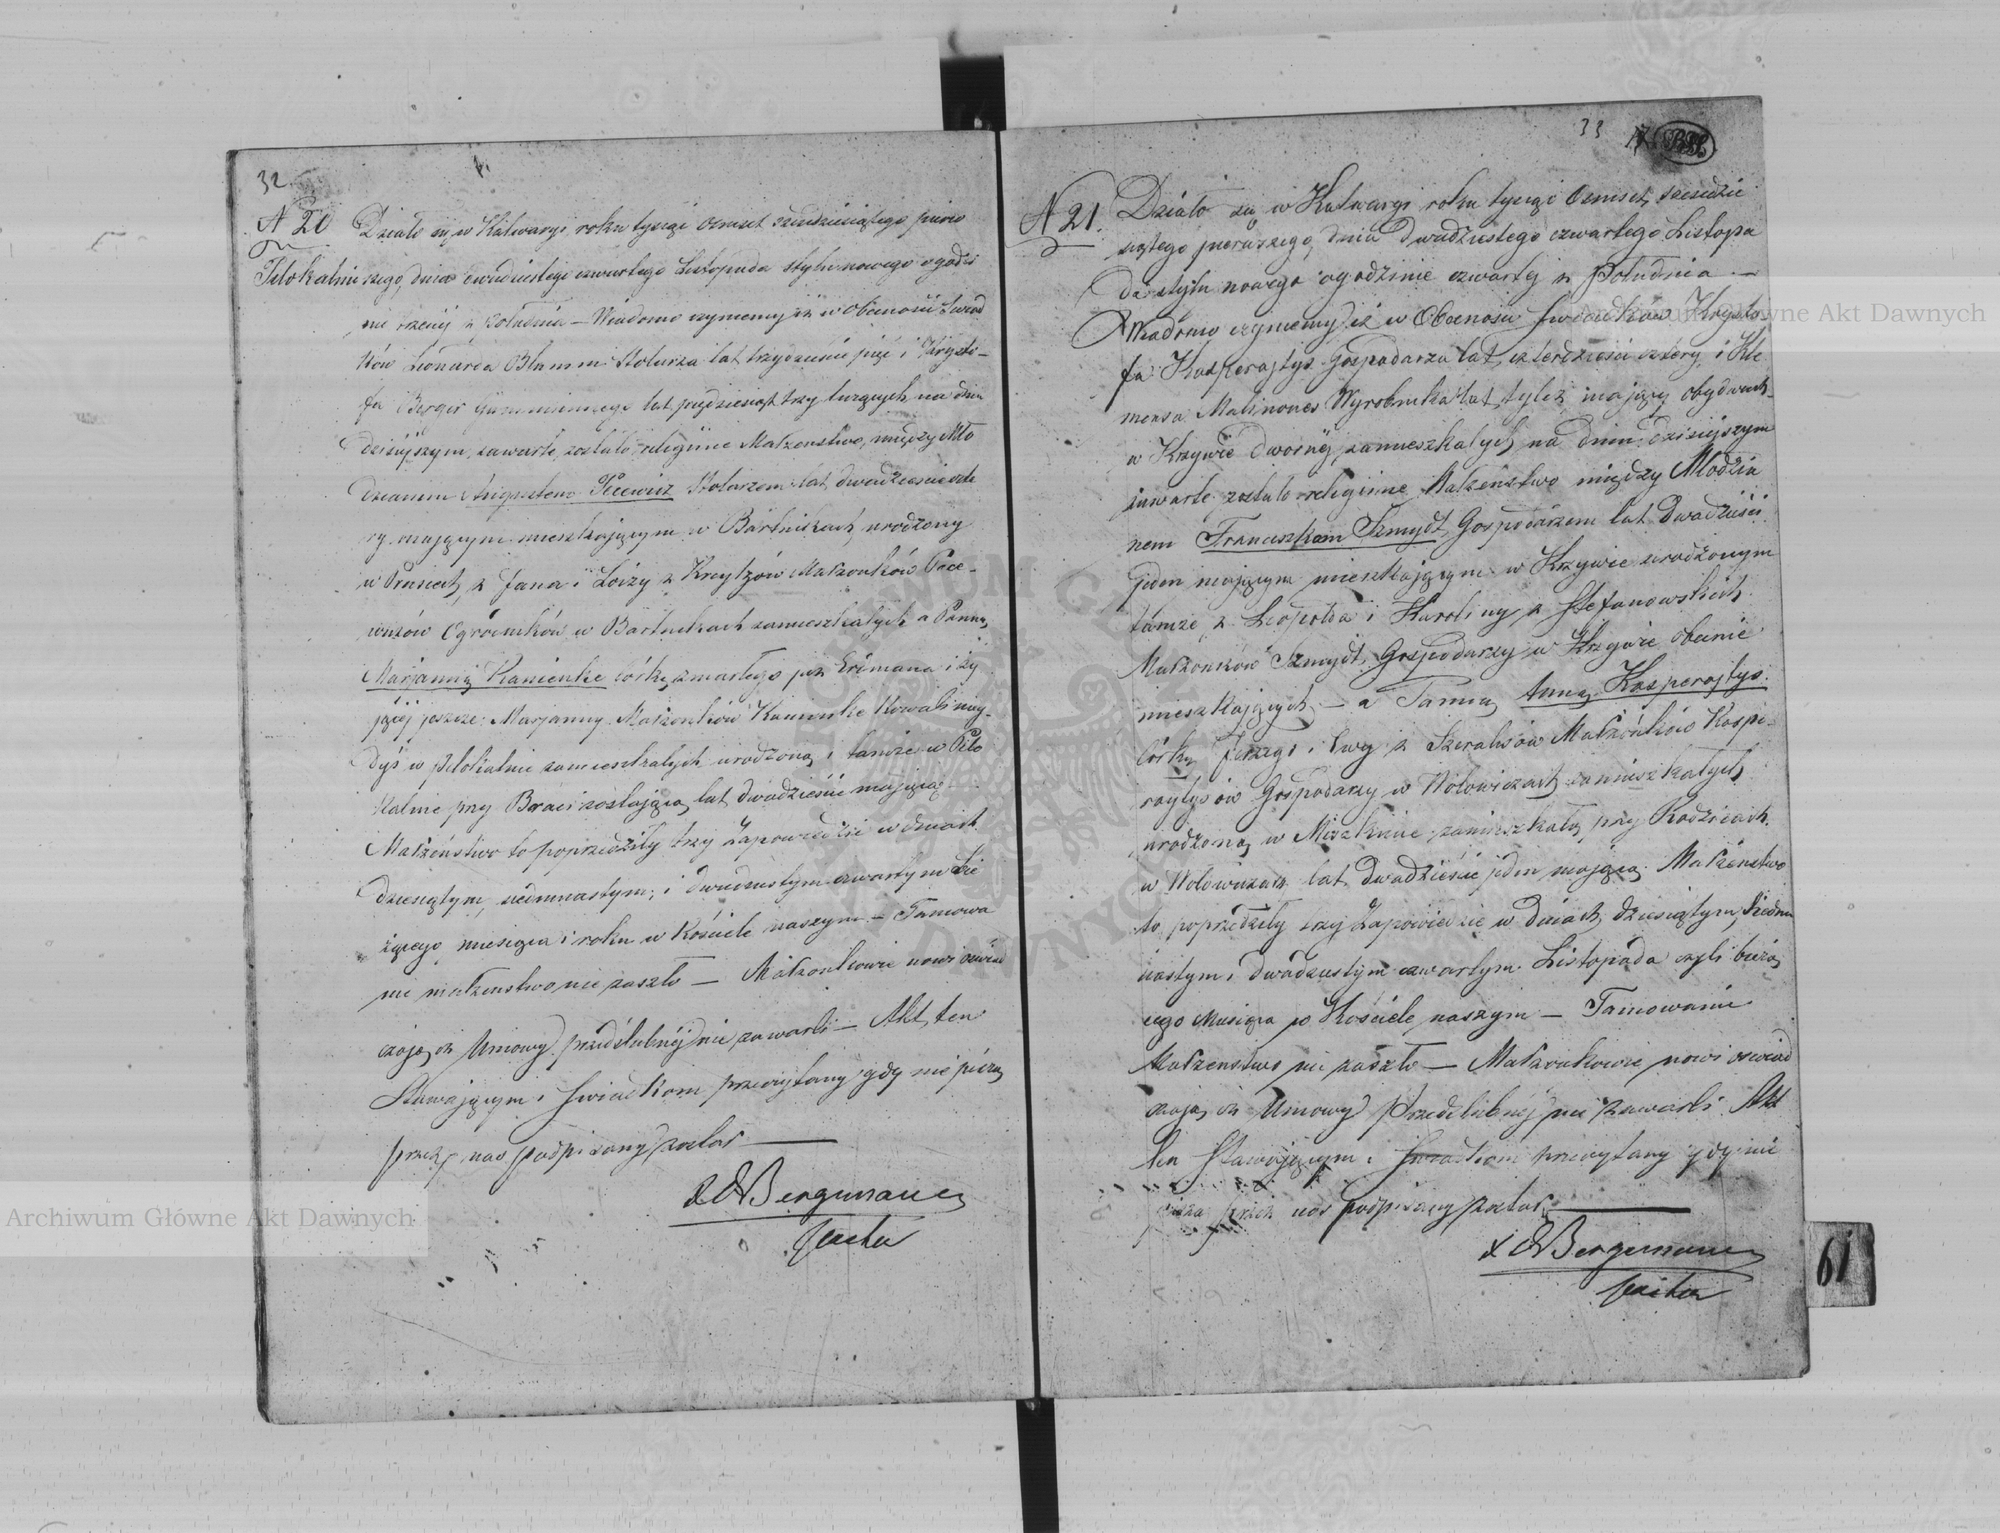 32
N 20
Piłokalnie
Działo się w Kalwaryi roku tysiąc ośmset sześdziesiątego pierw
szego, dnia dwudziestego czwartego Listopada stylu nowego o godzi
nie trzeciej z południa — Wiadomo czyniemy iż w obecności Świad
ków Leonarda Blumm Stolarza lat trzydzieście pięć i Krysto-
fa Berger lat pięćdziesiąt trzy liczących na dniu
dzisiejszym, zawarte zostało religijne Małżeństwo, między Mło
dzianem Augustem Pecewicz Stolarzem lat dwadzieścia czte
ry mającym mieszkającym w Bartnikach, urodzony
w Prusiech, z Jana i Loizy z Kreytzów Małżonków Pece-
wiczów Ogrodników w Bartnikach zamieszkałych a Panną
Marjanną Kamienke córką zmarłego już Erdmana i ży
jącej jeszcze Marjanny Małżonków Kamienke Kowali nieg-
dyś w Piłokalnie zamieszkałych urodzoną i tamże w Piło
kalnie przy Braci zostającą, lat dwadzieście mającą —
Małżeństwo to poprzedziły trzy Zapowiedzie w dniach
dziesiątym, siedmnastym, i dwudziestym czwartym bie
żącego miesiąca i roku w Kościele naszym — Tamowa
nie małżenstwa nie zaszło — Małżonkowie nowi oświad
czają, iż Umowy przedślubnéj nie zawarli — Akt ten
Stawającym i Świadkom przeczytany gdy nie piszą
przez nas podpisany został —
Bergmann
Pastor
33
N 21.
Działo się w Kalwaryi roku tysiąc Ośmset, sześdzie
siątego pierwszego, dnia dwudziestego czwartego Listopa
da stylu nowego o godzinie czwartej z Południa —
Wiadomo czyniemy, iż w Obecności Świadków Krysto
fa Kasperajtys Gospodarza lat, czterdzieści cztery, i Kle
mensa Malinowes Wyrobnika lat tyleż mający obydwuch
w Krzywie dwornéj zamieszkałych, na dniu dzisiejszym
zawarte zostało religijne Małżeństwo między Młodzia
nem Franciszkiem Szmydt, Gospodarzem lat dwadzieści
jeden mającym mieszkającym w Krzywie urodzonym
tamże z Leopolda i Karoliny z Stefanowskich
Małżonków Szmydt, Gospodarzy w Krzywie obecnie
mieszkających — a Panną Anną Kasperajtys
Córką Jerzego i Ewy z Szeralisów Małżonków Kaspe-
rajtysów Gospodarzy w Wołowiczach zamieszkałych
urodzoną w zamieszkałą przy Rodzicach
w Wołowiczach lat dwadzieście jeden mającą. Małżeństwo
to poprzedziły trzy Zapowiedzie w dniach, dziesiątym, siedm
nastym i dwudziestym czwartym Listopada czyli bieżą
cego Miesiąca w Kościele naszym — Tamowanie
Małżenstwa nie zaszło — Małżonkowie nowi oświad
czają, iż Umowy Przedślubnéj nie zawarli Akt
ten Stawającym i Świadkom przeczytany gdy nie
piszą przez nas podpisany został —
Bergmann
Pastor
61
Archiwum Główne Akt Dawnych
Archiwum Główne Akt Dawnych